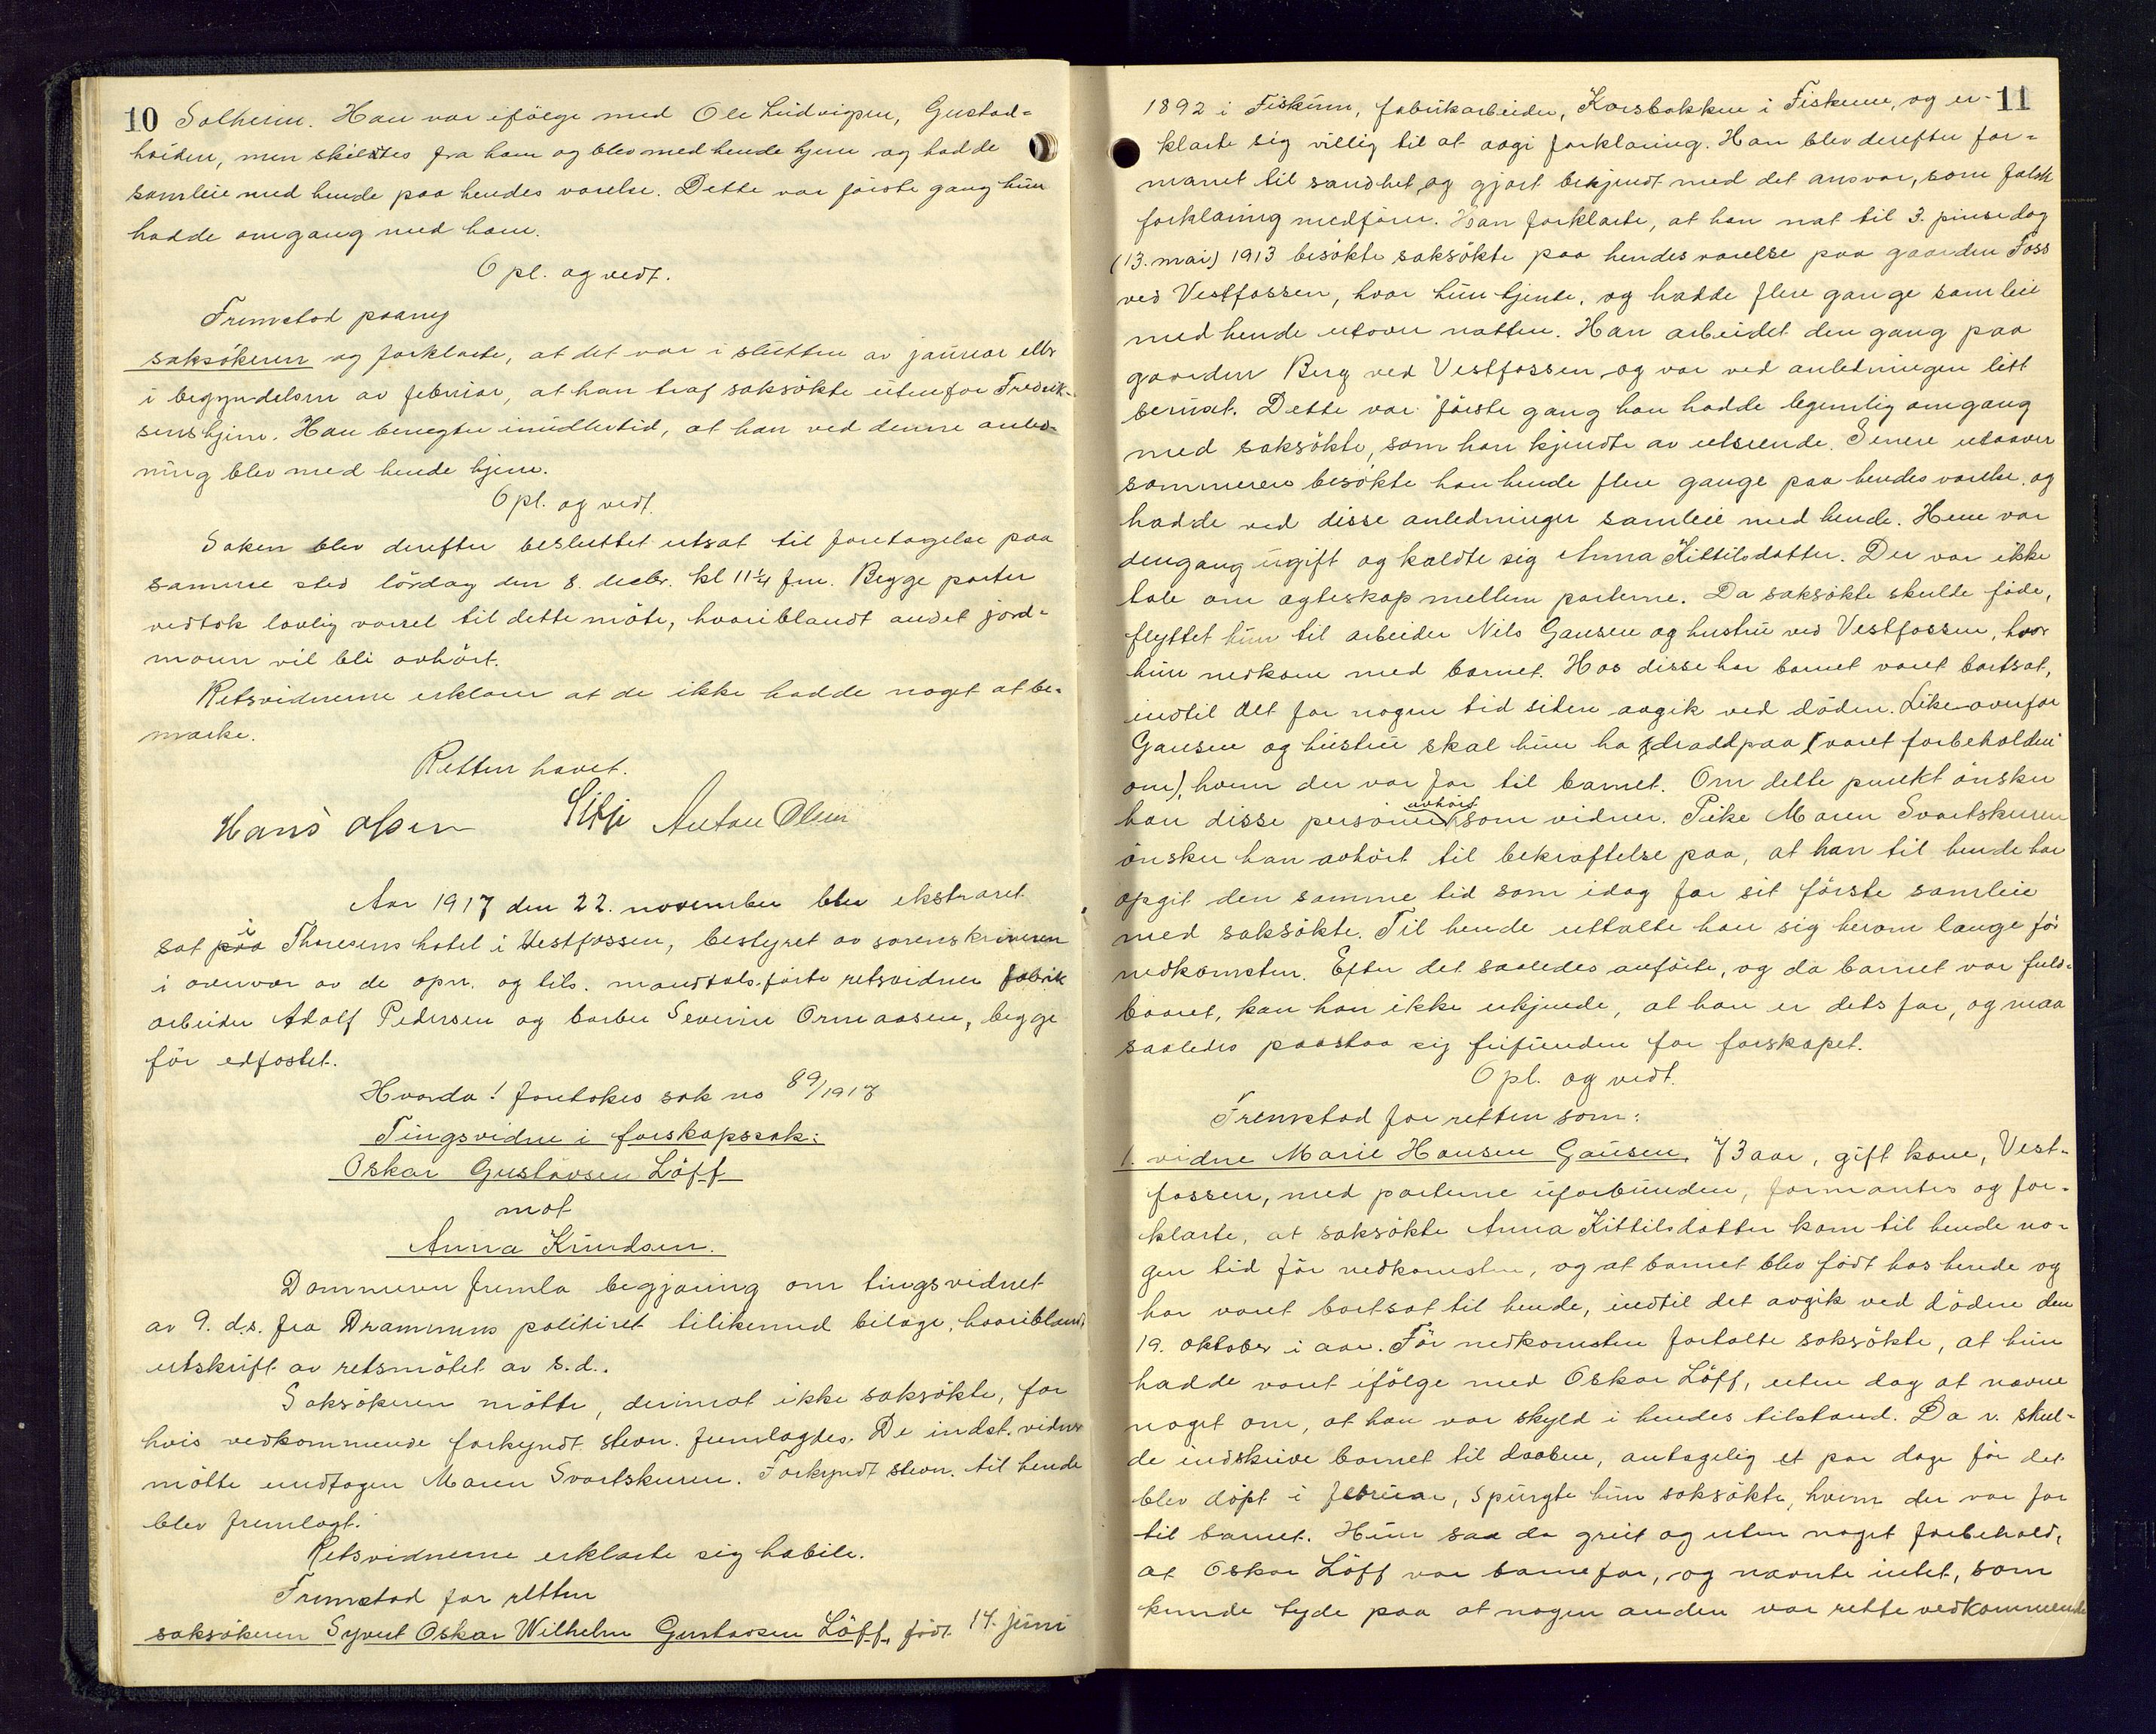 10 Solheim. Han var ifölge med Ole Ludvigsen, Gustad-
höiden, men skildtes fra ham og blev med hende hjem og hadde
samleie med hende paa hendes værelse. Dette var förste gang hun
hadde omgang med ham.
Opl. og vedt.
Fremstod paany
saksökeren og forklarte, at det var i slutten av januar eller
i begyndelsen av februar, at han traf saksökte utenfor Fredrik-
sens hjem. Han benegter imidlertid, at han ved denne anled-
ning blev med hende hjem.
Opl. og vedt.
Saken blev derefter besluttet utsat til foretagelse paa
samme sted lördag den 8. decbr. kl 11¼ fm. Begge parter
vedtok lovlig varsel til dette möte, hvoriblandt andet jord-
moren vil bli avhört.
Retsvidnerne erklærer at de ikke hadde noget at be-
mærke.
Retten hævet.
Hans Olsen Anton Olsen
Aar 1917 den 22. november blev ekstraret
sat paa i Thoresens hotel i Vestfossen, bestyret av sorenskriveren
i overvær av de opn. og tils. mandtalsförte retsvidner fabrik
arbeider Adolf Pedersen og barber Severin Ormaasen, begge
för edfæstet.
Hvorda! foretokes sak no 89/1917
Tingsvidne i farskapssak:
Oskar Gustavsen Löff
mot
Anna Knudsen.
Dommeren fremla begjæring om tingsvidnet
av 9. d.s. fra Drammens politiret tilikemed bilage, hvoriblandt
utskrift av retsmötet av s.d..
Saksökeren mötte, derimot ikke saksökte, for
hvis vedkommende forkyndt stevn. fremlagdes. De indst. vidner
mötte undtagen Maren Svartskuren. Forkyndt stevn. til hende
blev fremlagt.
Retsvidnerne erklærte sig habile.
Fremstod for retten
saksökeren Syvert Oskar Wilhelm Gustavsen Löff, födt 14. juni
1892 i Fiskum, fabrikarbeider, Korsbakken i Fiskum, og er- 11
klærte sig villig til at avgi forklaring. Han blev derefter for-
manet til sandhet og gjort bekjendt med det ansvar, som falsk
forklaring medförer. Han forklarte, at han nat til 3. pinsedag
(13. mai) 1913 besökte saksökte paa hendes værelse paa gaarden Foss
ved Vestfossen, hvor hun tjente, og hadde flere gange samleie
med hende utover natten. Han arbeidet den gang paa
gaarden Berg ved Vestfossen og var ved anledningen litt
beruset. Dette var förste gang han hadde legemlig omgang
med saksökte, som han kjendte av utseende. Senere utaaver
sommeren besökte han hende flere gange paa hendes værelse, og
hadde ved disse anledninger samleie med hende. Hun var
dengang ugift og kaldte sig Anna Kittilsdatter. Der var ikke
tale om ægteskap mellem parterne. Da saksökte skulde föde,
flyttet hun til arbeider Nils Gausen og hustru ved Vestfossen, hvor
hun nedkom med barnet. Hos disse har barnet været bortsat,
indtil det for nogen tid siden avgik ved döden. Like overfor
Gausen og hustru skal hun ha draddpaa (været forbeholden
om), hvem der var far til barnet. Om dette punkt önsker
han disse personer avhört som vidner. Pike Maren Svartskuren
önsker han avhört til bekræftelse paa, at han til hende har
opgit den samme tid som idag for sit förste samleie
med saksökte. Til hende uttalte han sig herom længe för
nedkomsten. Efter det saaledes anförte, og da barnet var fuld-
baaret, kan han ikke erkjende, at han er dets far, og maa
saaledes paastaa sig frifunden for farskapet.
Opl. og vedt.
Fremstod for retten som:
1. vidne Marie Hansen Gausen, 73 aar, gift kone, Vest-
fossen, med parterne uforbunden, formantes og for-
klarte, at saksökte Anna Kittilsdatter kom til hende no-
gen tid för nedkomsten, og at barnet blev födt hos hende og
har været bortsat til hende, indtil det avgik ved döden den
19. oktober i aar. För nedkomsten fortalte saksökte, at hun
hadde været ifölge med Oskar Löff, uten dog at nævne
noget om, at han var skyld i hendes tilstand. Da v. skul-
de indskrive barnet til daaben, antagelig et par dage för det
blev döpt i februar, spurgte hun saksökte, hvem der var far
til barnet. Hun saa da greit og uten noget forbehold,
at Oskar Löff var barnefar, og nævnte intet, som
kunde tyde paa at nogen anden var rette vedkommende